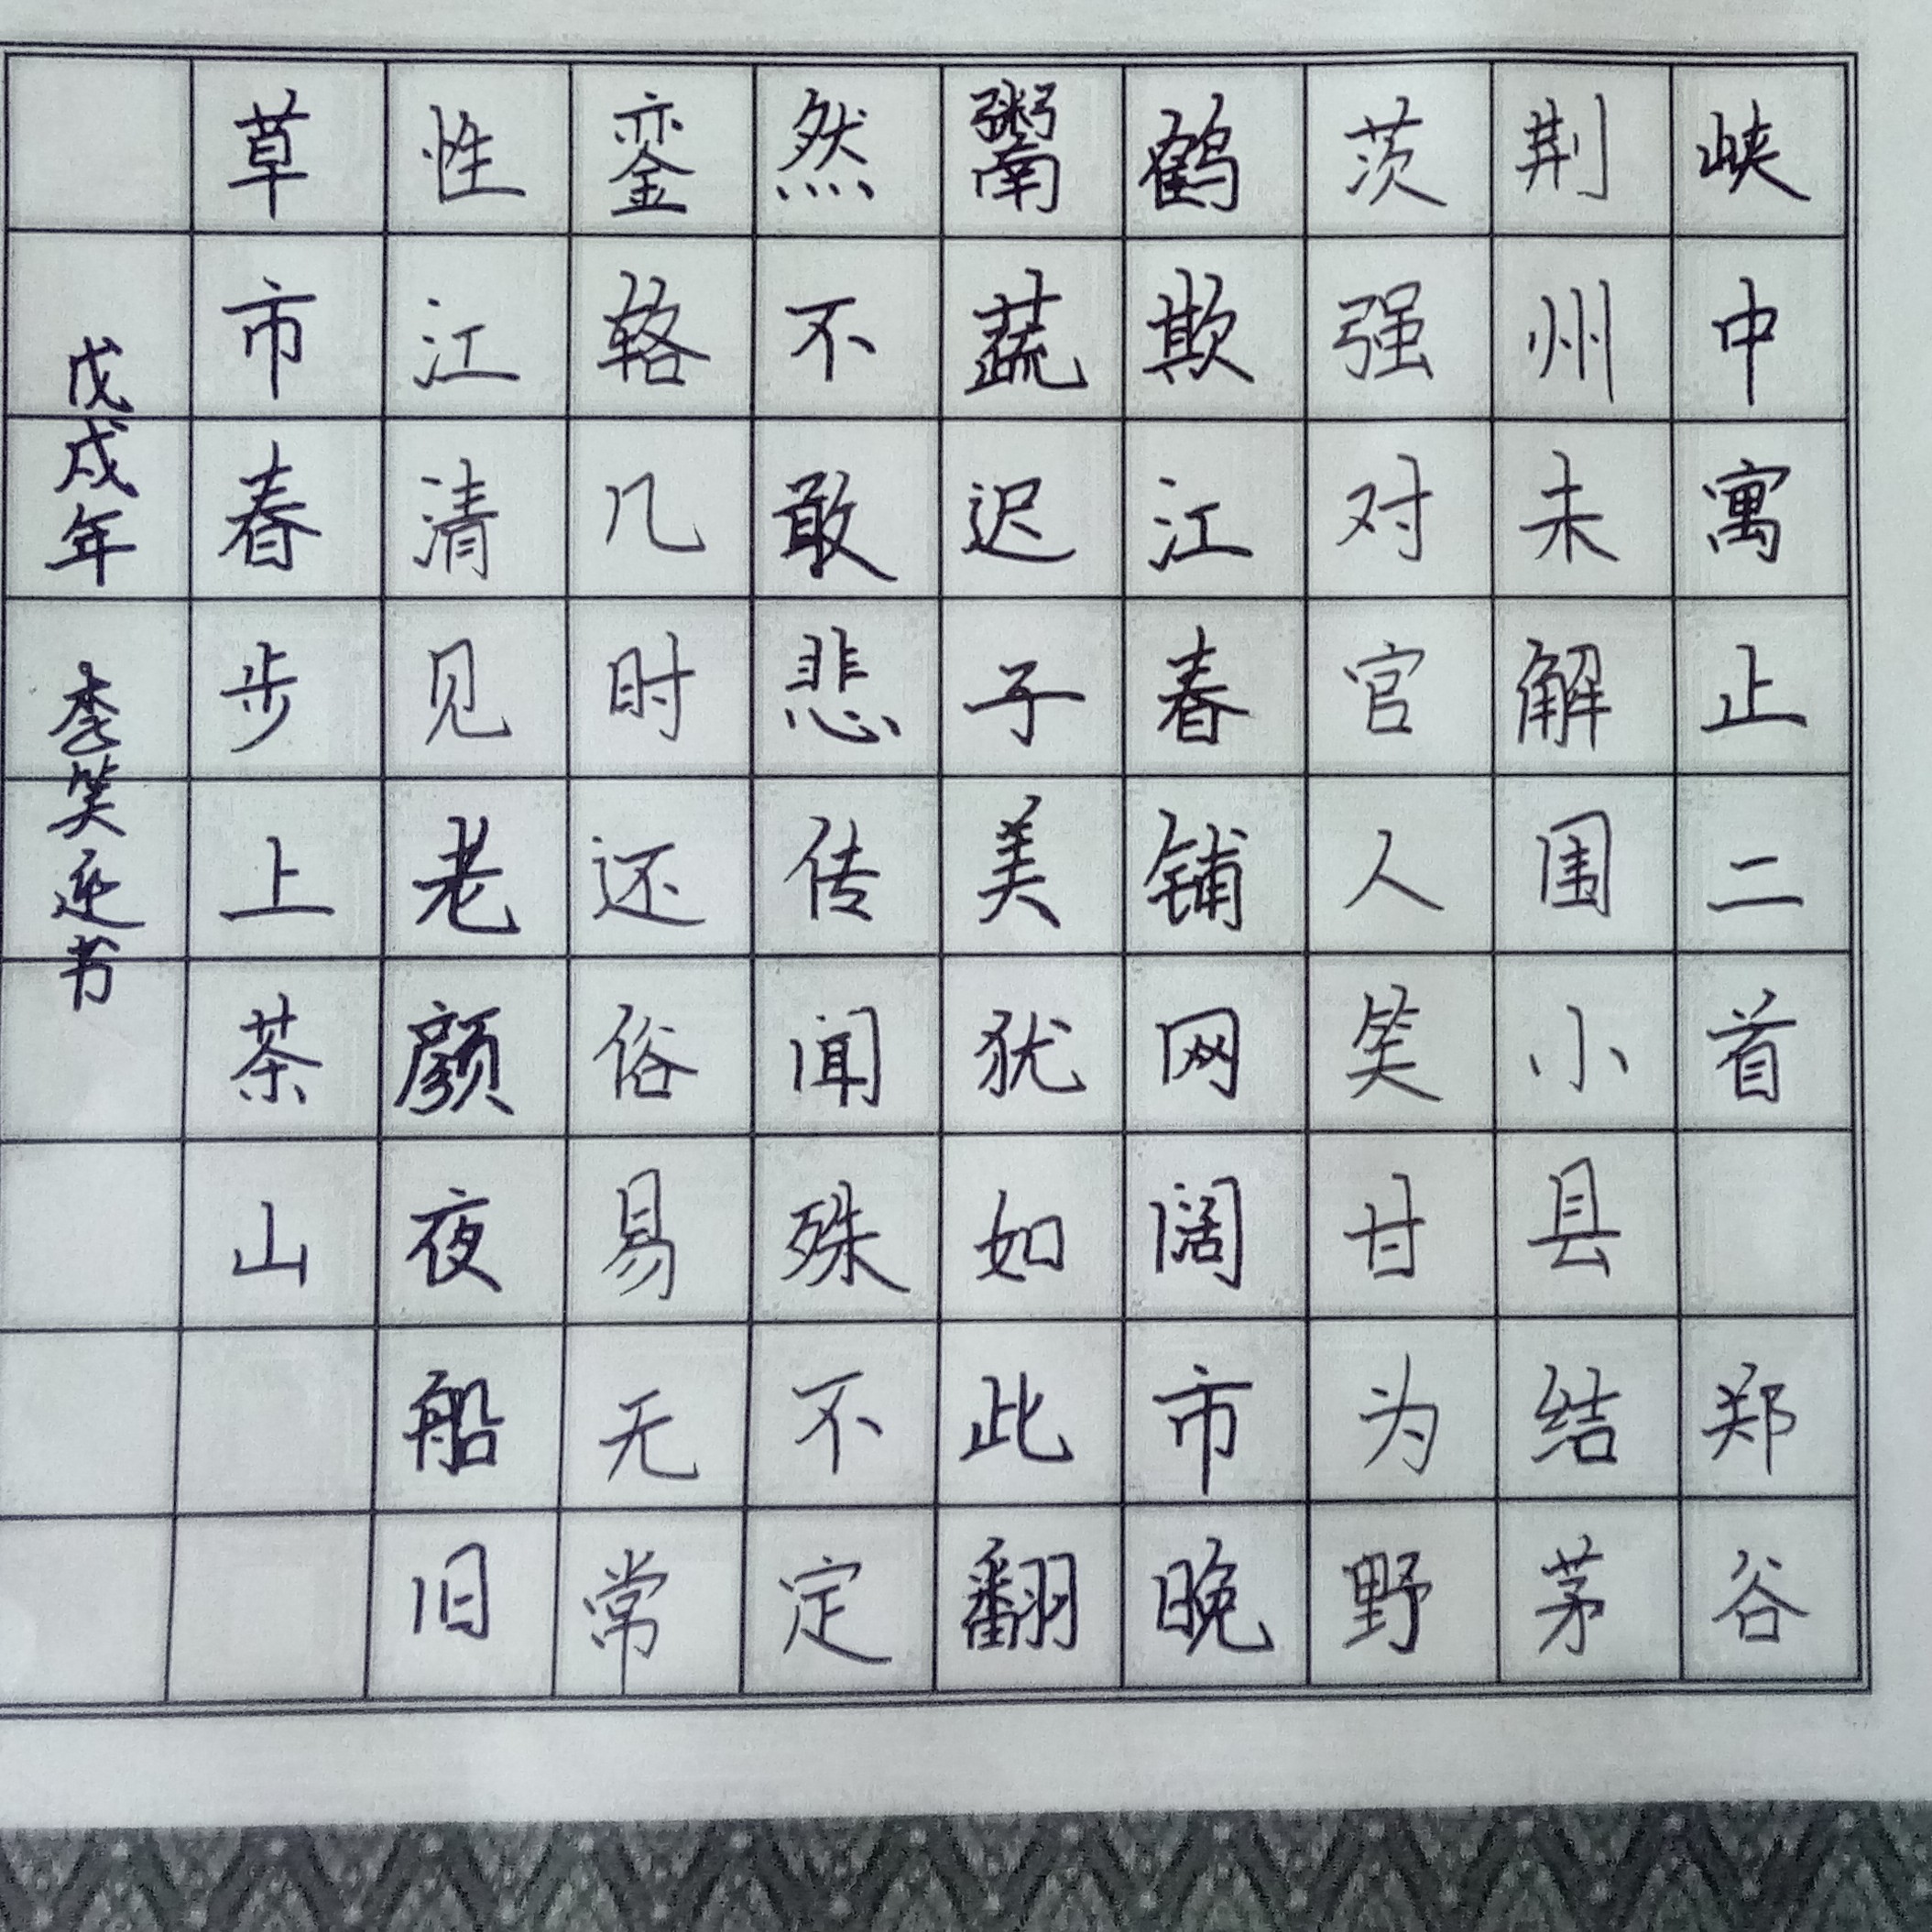 峡中寓止二首 郑谷
荆州未解围小县结茅
茨强对官人笑甘为野
鹤欺江春铺网阔市晚
鬻蔬迟子美犹如此翻
然不敢悲传闻殊不定
銮辂几时还俗易无常
性江清见老颜夜船旧
草市春步上茶山
戊戌年 李笑迎书